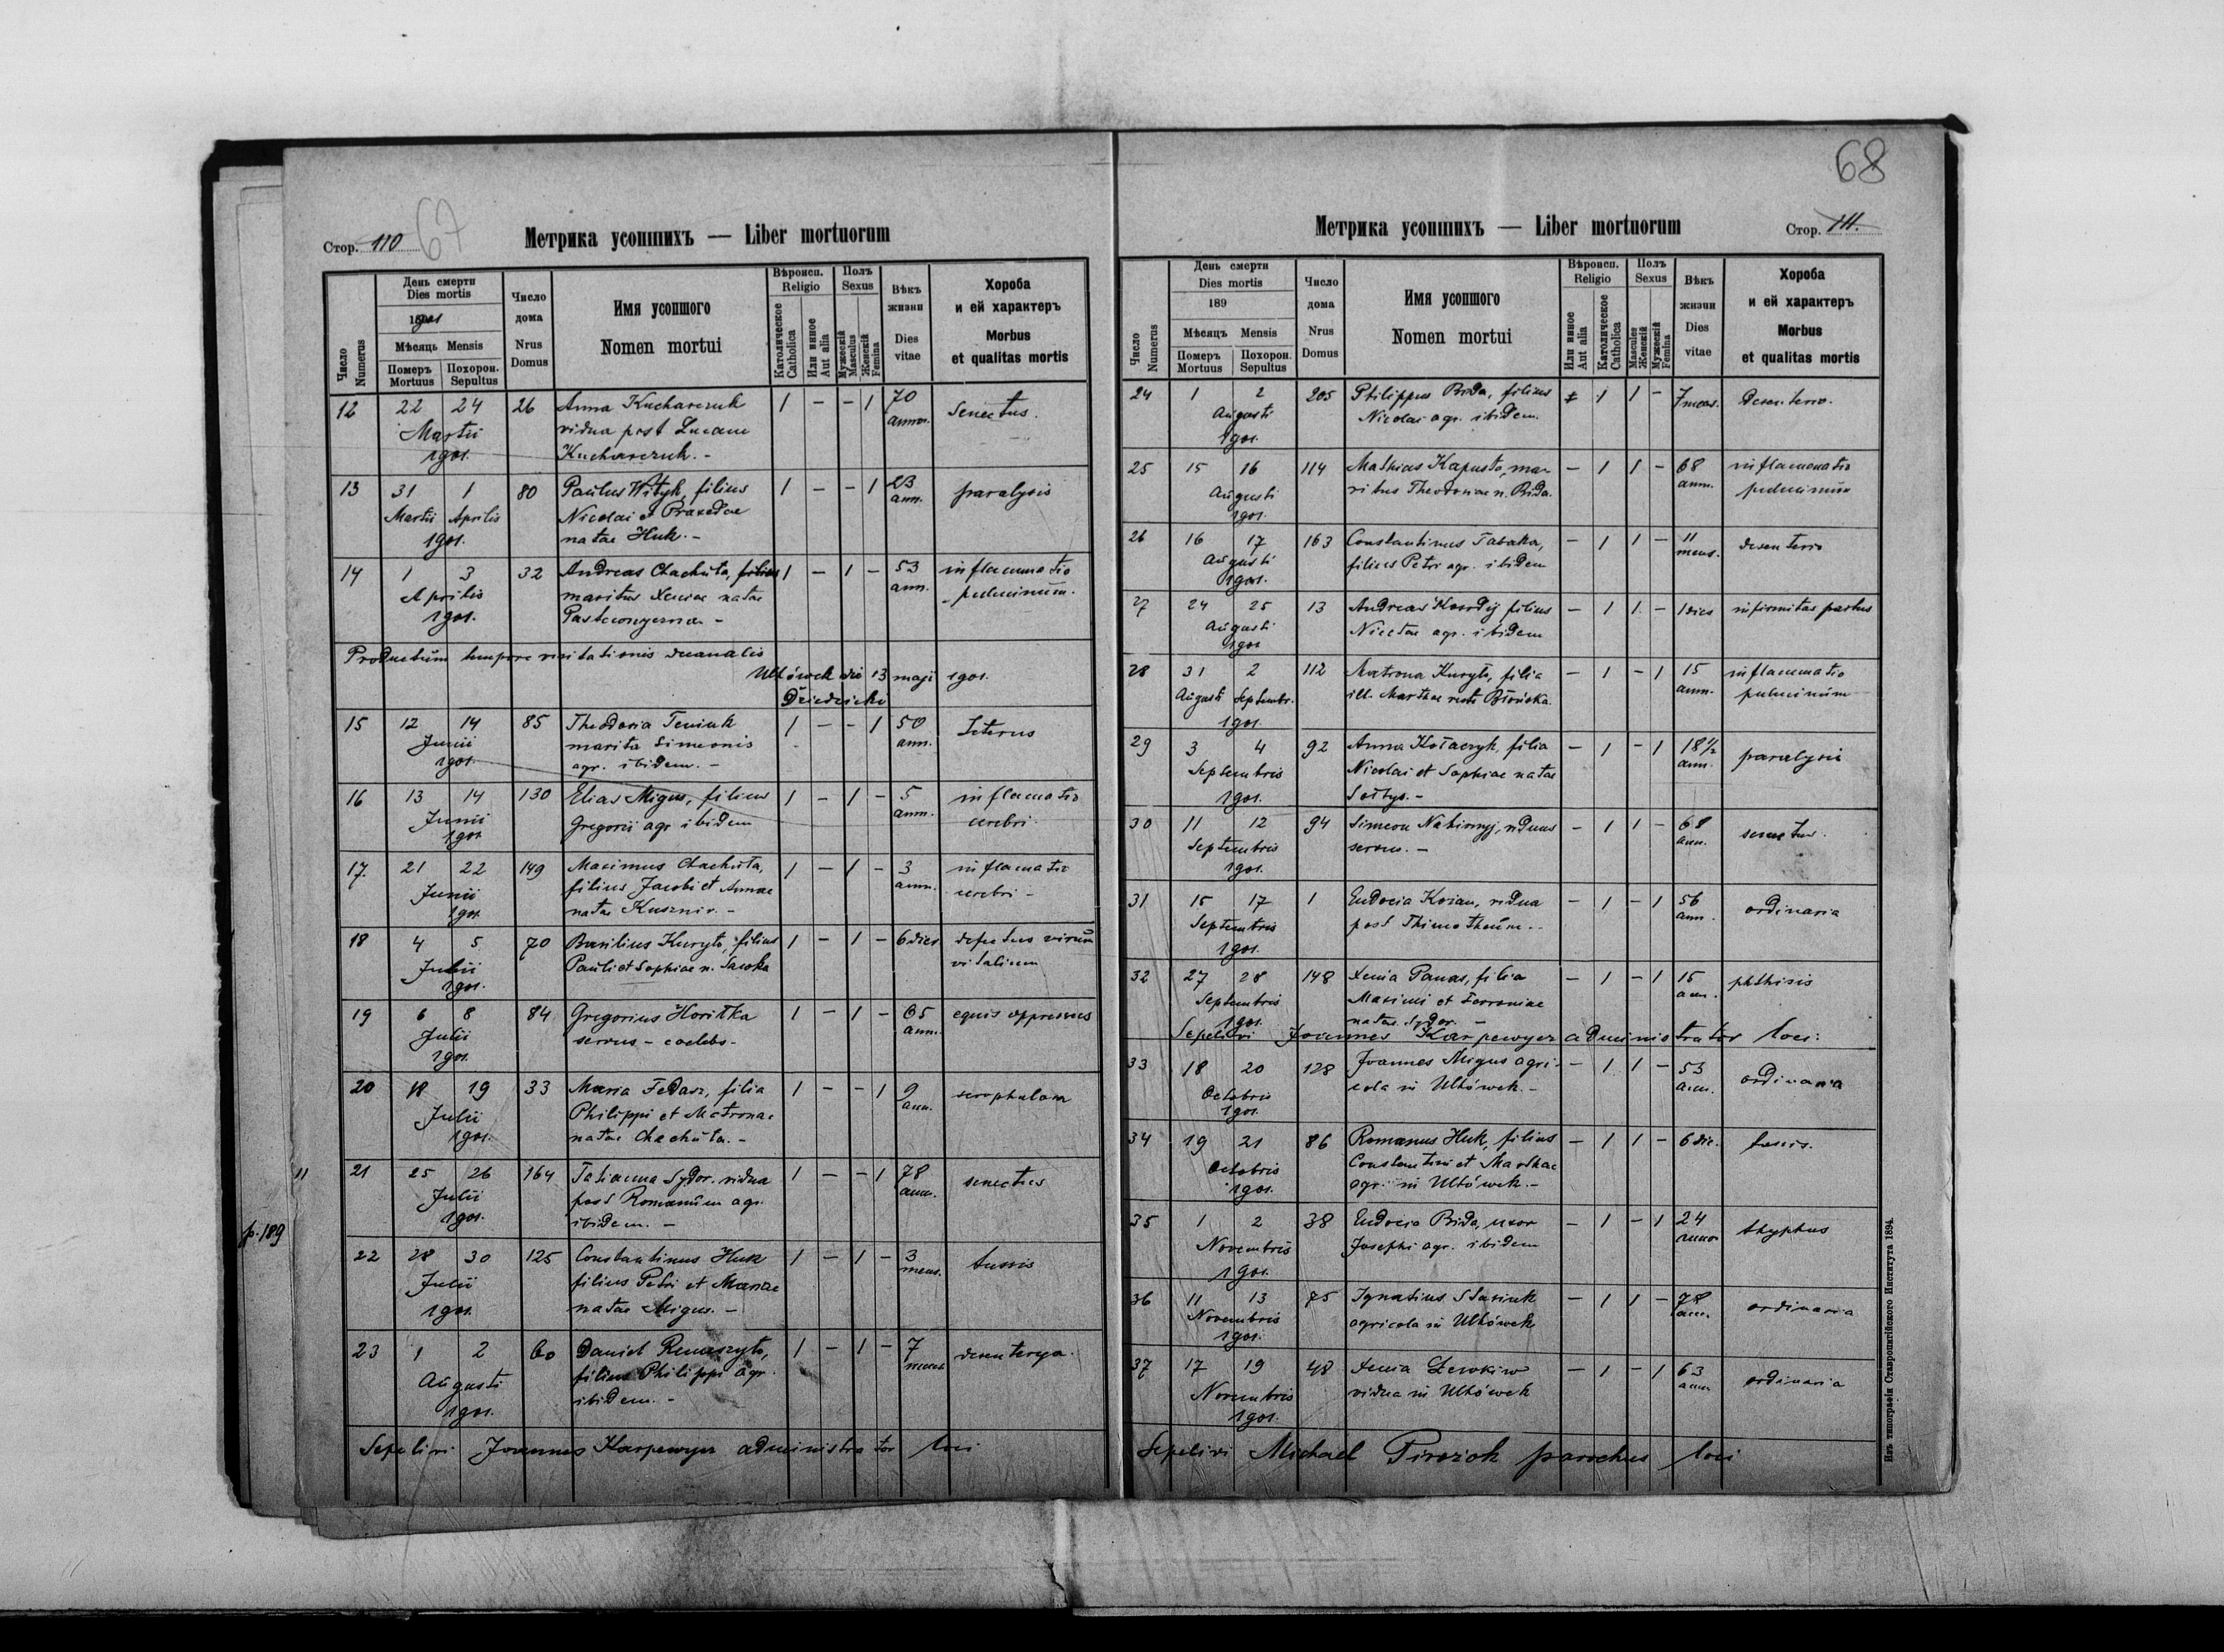 Стор. 110
67
Метрика усопшихъ — Liber mortuorum
Число Numerus
День смерти
Dies mortis
1901
Мѣсяць Mensis
Померъ Mortuus
Похорон. Sepultus
Число дома Nrus Domus
Имя усопшого
Nomen mortui
Вѣроисп. Religio
Католическое Catholica
Или инное Aut alia
Полъ Sexus
Мужескій Masculus
Женскій Femina
Вѣкъ жизни Dies vitae
Хороба
и ей характеръ
Morbus
et qualitas mortis
12 22 24 26 Anna Kucharczuk 1 — — 1 70 Senectus.
Martii vidua post Lucam annor.
1901. Kucharczuk. -
13 31 1 80 Paulus Wityk, filius 1 — — 1 23 paralysis
Martii Aprilis Nicolai et Praxedae ann.
1901. natae Huk. -
14 1 3 32 Andreas Chachuta, filius 1 — 1 — 53 inflammatio
Aprilis maritus Xeniae natae ann. pulminum.
1901.
Productum tempore visitationis decanalis
Uhówek die 13 maji 1901.
Dziedzicki
15 12 14 85 Theodoria Teniuk 1 — — 1 50 Icterus
Junii marita Simeonis ann.
1901. agr. ibidem. -
16 13 14 130 Elias Migus, filius 1 — 1 — 5 inflamatio
Junii Gregorii agr ibidem ann. cerebri.
1901
17. 21 22 149 Maximus Chachuta, 1 — 1 — 3 inflamatio
Junii filius Jacobi et Annae ann. cerebri -
1901. natae Kusznir. -
18 4 5 70 Basilius Kuryto, filius 1 — 1 — 6 dies defectus virium
Julii Pauli et Sophiae n. Saroka vitalium
1901.
19 6 8 84 Gregorius Horitka 1 — 1 — 65 equis oppressus
Julii servus - coelebs - ann.
1901.
20 18 19 33 Maria Fedasz, filia 1 — — 1 9
Julii Philippi et Matronae ann.
1901. natae Chachuta. -
21 25 26 164 Tatianna Sydor. vidua 1 — — 1 78 senectus
Julii post Romanum agr. ann.
1901. ibidem. -
11
p. 189
22 28 30 125 Constantinus Huk 1 — 1 — 3 tussis
Julii filius Petri et Mariae mens.
1901. natae Migus. -
23 1 2 60 Daniel Remeszyto, 1 — 1 — 7 desenterya.
Augusti filius Philippi agr. mens.
1901. ibidem. -
Sepelivi Joannes Karpewycz administrator loci
68
Метрика усопшихъ — Liber mortuorum
Стор. 111.
Число Numerus
День смерти
Dies mortis
189
Мѣсяцъ Mensis
Померъ Mortuus
Похорон. Sepultus
Число дома Nrus Domus
Имя усопшого
Nomen mortui
Вѣроисп. Religio
Или инное Aut alia
Католическое Catholica
Полъ Sexus
Masculus Женскій
Мужескій Femina
Вѣкъ жизни Dies vitae
Хороба
и ей характеръ
Morbus
et qualitas mortis
24 1 2 205 Philippus Brida, filius 1 1 — 7 mens. Desenteria.
Augusti Nicolai agr. ibidem.
1901.
25 15 16 114 Mathias Kapusta, ma- — 1 1 — 68 inflammatio
Augusti ritus Theodoriae n. Brida. ann. pulminum
1901.
26 16 17 163 Constantinus Tabaka, — 1 1 — 11 desenteria
Augusti filius Petri agr. ibidem mens.
1901.
27 24 25 13 Andreas filius — 1 1. — 1 dies infirmitas partus
Augusti Nicetae agr. ibidem
1901
28 31 2 112 Matrona Kuryto, filia — 1 — 1 15 inflammatio
Augusti Septembr. ill. Marthae ann. pulminum
1901.
29 3 4 92 Anna Kołaczyk, filia — 1 — 1 18 1/2 paralysis
Septembris Nicolai et Sophiae natae ann.
1901. Sołtys. -
30 11 12 94 Simeon Nahirnyj, viduus — 1 1 — 68 senectus.
Septembris servus. - ann.
1901.
31 15 17 1 Eudocia Kozian, vidua — 1 — 1 56 ordinaria
Septembris post Thimotheum. - ann.
1901.
32 27 28 148 Xenia Panas, filia — 1 — 1 15 phthisis
Septembris Maximi et Ferroniae ann.
1901. natae Sydor. -
Sepelivi Joannes Karpewycz administrator loci:
33 18 20 128 Joannes Migus agri- — 1 1 — 53 ordinaria
Octobris cola in Uhówek. - ann.
1901.
34 19 21 86 Romanus Huk, filius — 1 1 — 6 die. tussis.
Octobris Constantini et Marthae
1901. agr. in Uhówek. -
35 1 2 38 Eudocia Brida, uxor — 1 — 1 24 thyphus
Novembris Josephi agr. ibidem annor
1901.
36 11 13 75 Ignatius Stasiuk — 1 1 — 78 ordinaria
Novembris agricola in Uhówek ann.
1901.
37 17 19 48 Xenia Lewkiw — 1 — 1 63 ordinaria
Novembris vidua in Uhówek ann
1901.
Sepelivi Michael Pirożok parochus loci
Изъ типографіи Ставропигійского Института 1894.